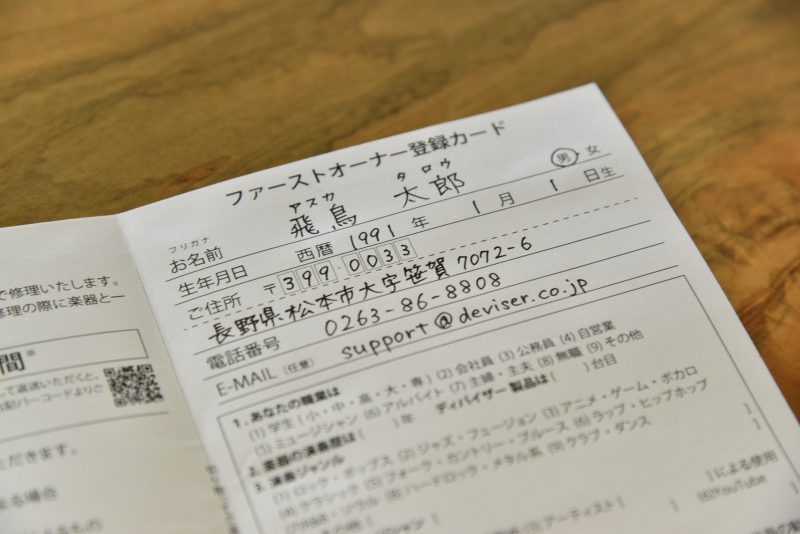 ファーストオーナー登録カード
フリガナ アスカ タロウ
お名前 飛鳥 太郎 男・女
生年月日 西暦 1991 年 1 月 1 日生
ご住所 〒399-0033
長野県松本市大字笹賀7072-6
電話番号 0263-86-8808
E-MAIL (任意) support@deviser.co.jp
1. あなたの職業は
(1) 学生 (小・中・高・大・専) (2) 会社員 (3) 公務員 (4) 自営業
(5) ミュージシャン (6) アルバイト (7) 主婦・主夫 (8) 無職 (9) その他
2. 楽器の演奏歴は ( ) 年 ディバイザー製品は ( ) 台目
3. 演奏ジャンル
(1) ロック・ポップス (2) ジャズ・フュージョン (3) アニメ・ゲーム・ボカロ
(4) クラシック (5) フォーク・カントリー・ブルース (6) ラップ・ヒップホップ
(8) ハードロック・メタル系 (9) クラブ・ダンス
による使用
(3) アーティスト [ ] (6) YouTube
で修理いたします。
修理の際に楽器と一
間※
して返送いただくと、
だきます。
る場合